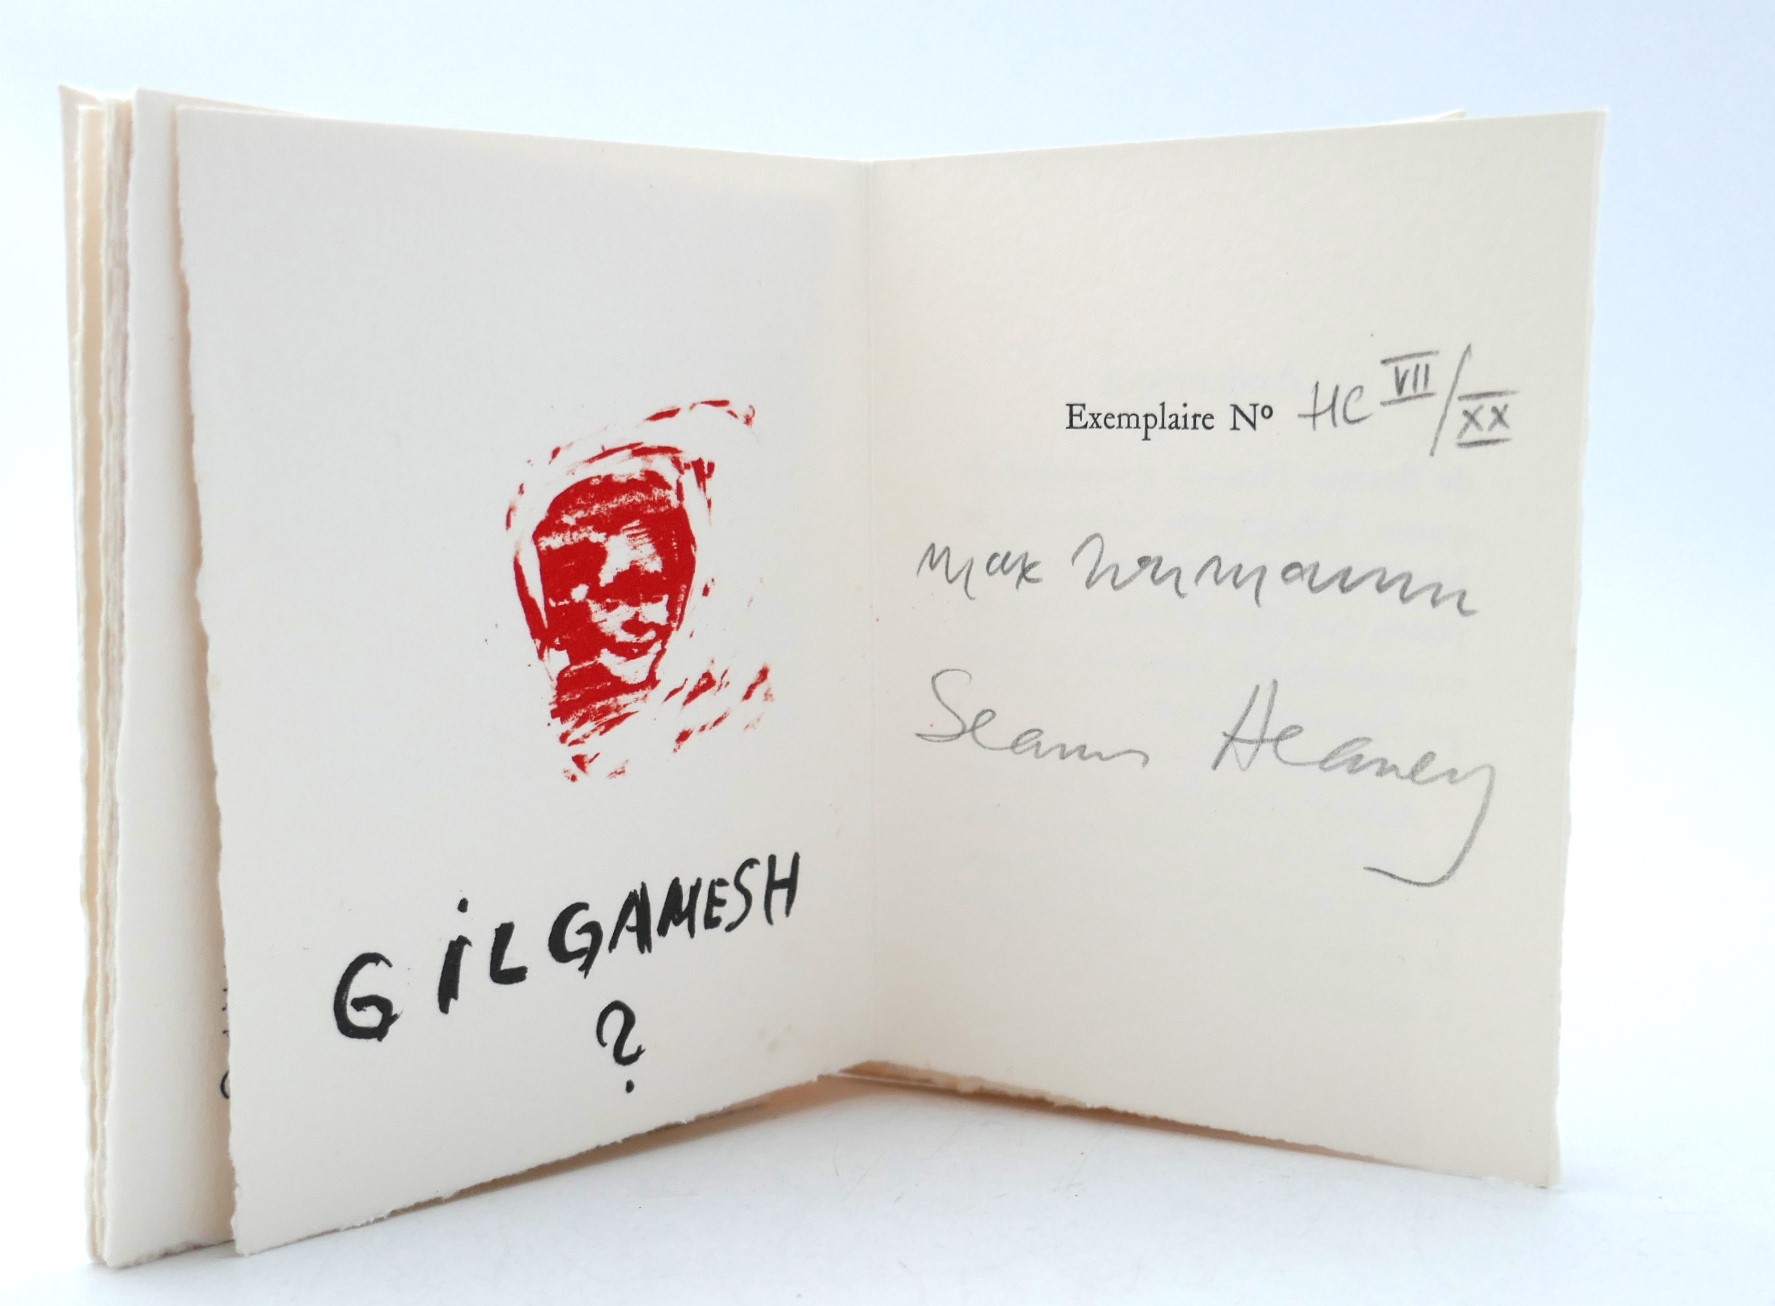 GiLGAMESH
?
Exemplaire Nº HC VII/XX
Max Neumann
Seamus Heaney